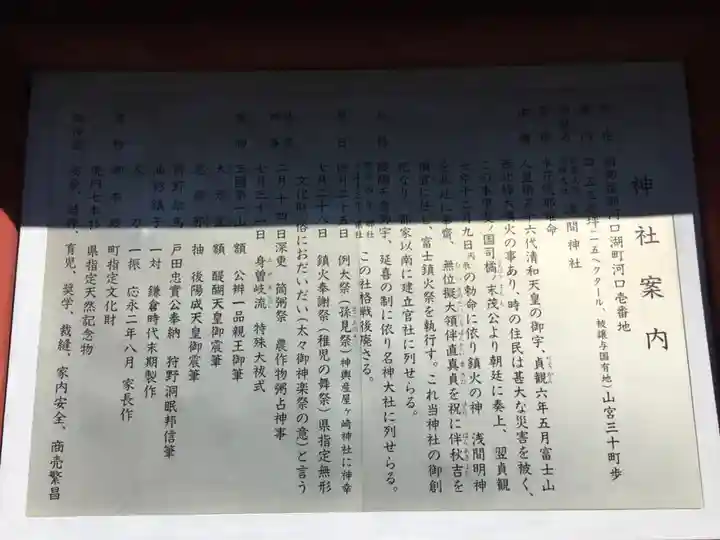 神社案内
南都留郡河口湖町河口壱番地
二五ヘクタール、被譲与国有地)山宮三十町歩
浅間神社
木花開耶姫命
人皇第五十六代清和天皇の御宇、貞観六年五月富士山
噴火の事あり、時の住民は甚大な災害を被く、
国司橘ノ末茂公より朝廷に奏上、翌貞観
七年十二月九日の勅命に依り鎮火の神 浅間明神
無位擬大領伴直真貞を祝に伴秋吉を
富士鎮火祭を執行す。これ当神社の御創
郡家以南に建立官社に列せらる。
醍醐天皇 延喜の制に依り名神大社に列せらる。
この社格戦後廃さる。
四月二十五日 例大祭(孫見祭)神輿産屋ヶ崎神社に神幸
七月二十八日 鎮火奉謝祭(稚児の舞祭)県指定無形
文化財俗におだいだい(太々御神楽祭の意)と言う
二月十四日深更 筒粥祭 農作物粥占神事
七月三一日 身曽岐流 特殊大祓式
三国第一山 額 公辨一品親王御筆
額 醍醐天皇御宸筆
袖 後陽成天皇御宸筆
戸田忠實公奉納 狩野洞眠邦信筆
一対 鎌倉時代末期製作
一振 応永二年八月 家長作
町指定文化財
七本杉 県指定天然記念物
安産、育児、奨学、裁縫、家内安全、商売繁昌